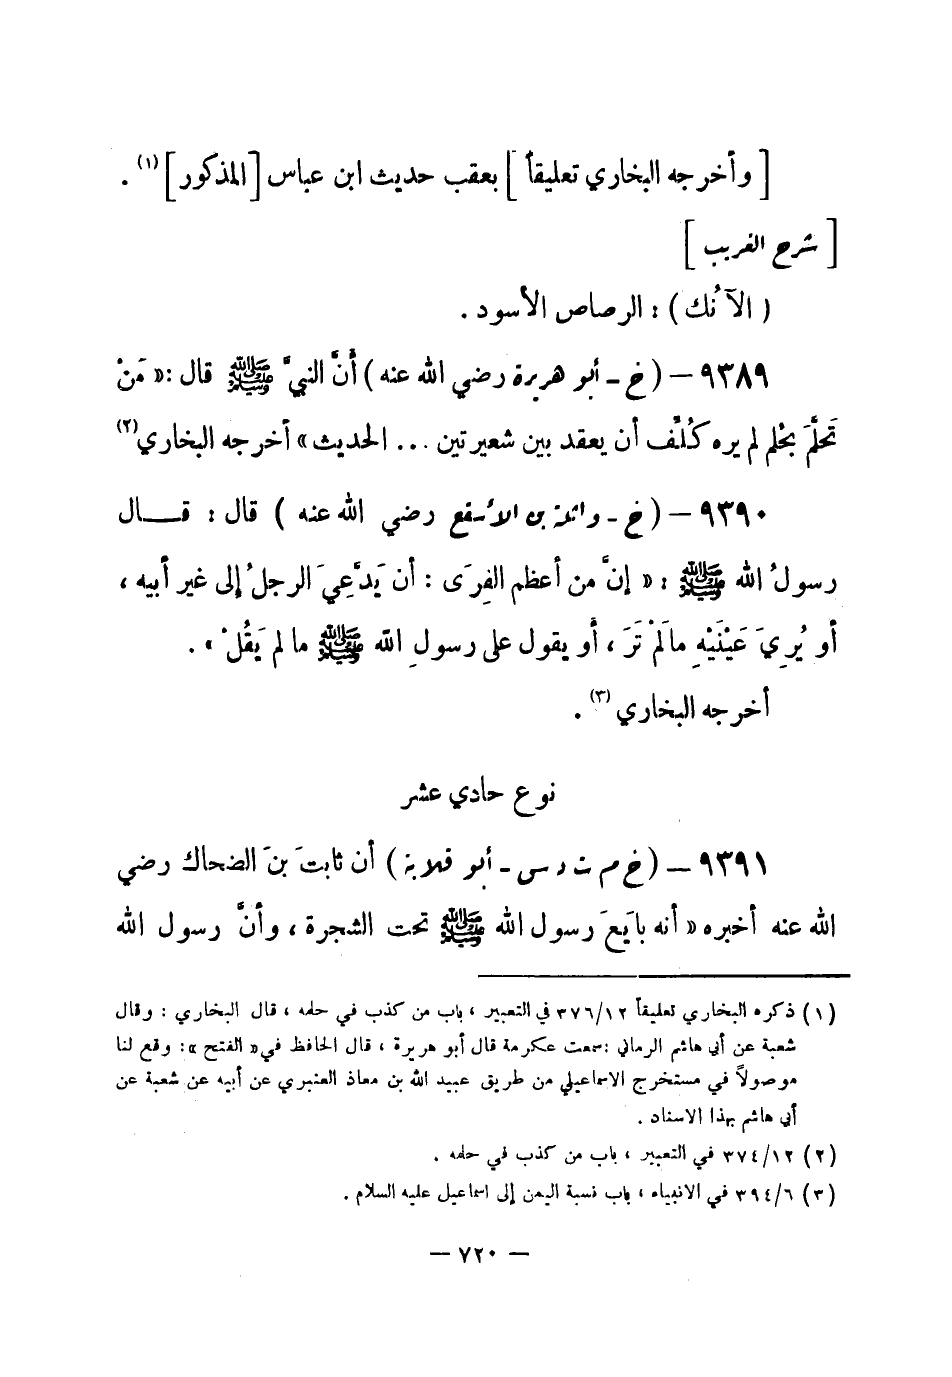 [ وأخرجه البخاري تعليقاً ] بعقب حديث ابن عباس [المذكور] (١) .
[ شرح الغريب ]
( الآنُك ) : الرصاص الأسود .
٩٣٨٩ – ( خ - أبو هريرة رضي الله عنه ) أنَّ النبيَّ ﷺ قال : « مَنْ
تَحلَّمَ بحُلم لم يره كُلِّف أن يعقد بين شعيرتين ... الحديث » أخرجه البخاري (٢)
٩٣٩٠ – ( خ - واثلة بن الأسقع رضي الله عنه ) قال : قــال
رسولُ الله ﷺ : « إنَّ من أعظم الفِرَى : أن يَدَّعِيَ الرجلُ إلى غير أبيه ،
أو يُرِيَ عَيْنَيْهِ مالَمْ تَرَ ، أو يقول على رسولِ الله ﷺ ما لم يَقُلْ » .
أخرجه البخاري (٣) .
نوع حادي عشر
٩٣٩١ – ( خ م ت د س - أبو قلابة ) أن ثابتَ بنَ الضحاك رضي
الله عنه أخبره « أنه بايَعَ رسول الله ﷺ تحت الشجرة ، وأنَّ رسول الله
(١) ذكره البخاري تعليقاً ٣٧٦/١٢ في التعبير ، باب من كذب في حلمه ، قال البخاري : وقال
شعبة عن أبي هاشم الرماني : سمعت عكرمة قال أبو هريرة ، قال الحافظ في « الفتح » : وقع لنا
موصولاً في مستخرج الاسماعيلي من طريق عبيد الله بن معاذ العنبري عن أبيه عن شعبة عن
أبي هاشم بهذا الاسناد .
(٢) ٣٧٤/١٢ في التعبير ، باب من كذب في حلمه .
(٣) ٣٩٤/٦ في الانبياء ، باب نسبة اليمن إلى اسماعيل عليه السلام .
– ٧٢٠ –